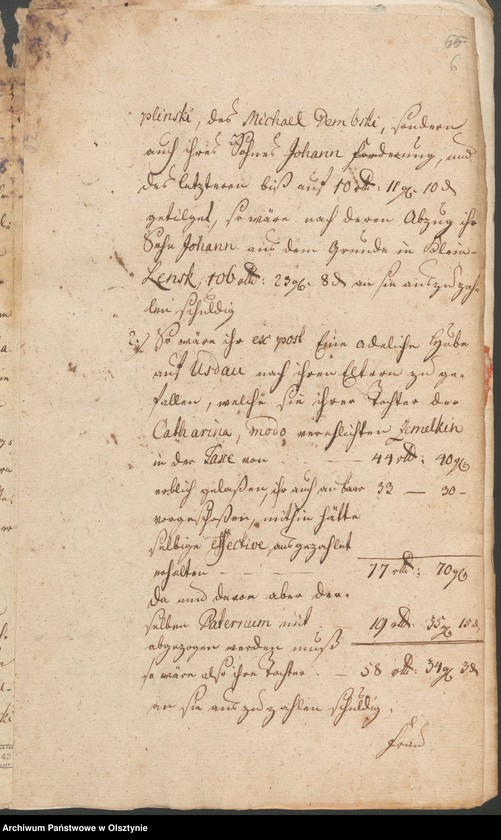 55
6
plinski, des Michael Dembski, sondern
auch ihres Sohnes Johann forderung, und
des letzteren biß auf 10 rtl: 11 g. 10 d
getilget, so wäre nach deren Abzug ihr
Sohn Johann aus dem Grunde in Klein-
Lensk, 106 rtl: 23 g. 8 d an sie auszuzah-
len schuldig
2./ So wäre ihr ex post Eine adeliche Hube
auf Usdau nach ihren Eltern zu ge-
fallen, welche sie ihrer Tochter der
Catharina, modo verehlichten Zemelkin
in der Taxe von — 44 rtl: 40 g
erblich gelaßen, ihr auch an baar 33 — 30 —
vorgeschoßen, mithin hätte
selbige effective, ausgezahlet
erhalten — 77 rtl: 70 g
da nun davon aber der-
selben Paternum mit — 19 rtl: 35 g 15 d
abgezogen werden muß
so wäre also ihre Tochter — 58 rtl: 34 g 3 d
an sie auszuzahlen schuldig.
Frau
Archiwum Państwowe w Olsztynie